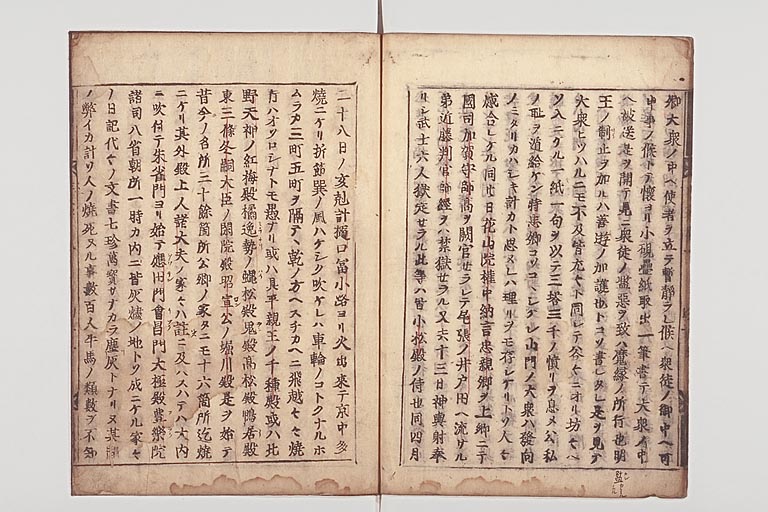 卿大衆ノ中ヘ使者ヲ立テ暫静ラレ候ヘ衆徒ノ御中ヘ可
申事ノ候トテ懐ヨリ小硯畳紙取出一筆書テ大衆ノ中
ヘ被送是ヲ開テ見ニ衆徒ノ濫悪ヲ致ハ魔縁ノ所行也明
王ノ制止ヲ加ルハ善逝ノ加護也トコソ書レタレ是ヲ見テ
大衆ヒツハルニモ不及皆尤〻ト同シテ谷〻ニオリ坊〻ヘ
ソ入ニケル一紙一句ヲ以テ三塔三千ノ憤リヲ息メ公私
ノ恥ヲ遁給ケン時忠卿コソユヽシケレ山門ノ大衆ハ發向
ノミタリカハシキ計カト思タレハ理リヲモ存シケリトソ人〻
感合レケル同廿日花山院權中納言忠親卿ヲ上卿ニテ
國司加賀守師高ヲ闕官セラレテ尾張ノ井戸田ヘ流サル
弟近藤判官師經ヲハ禁獄セラル又去十三日神輿射奉
リシ武士六人獄定セラル此等ハ皆小松殿ノ侍也同四月
二十八日ノ亥剋計樋口冨小路ヨリ火出來テ京中多
燒ニケリ折節巽ノ風ハケシク吹ケレハ車輪ノコトクナルホ
ムラカ三町五町ヲ隔テヽ乾ノ方ヘスチカヘニ飛越〻〻燒
行ハオソロシナトモ愚ナリ或ハ具平親王ノ千種殿或ハ北
野天神ノ紅梅殿橘逸勢ノ蝿松殿鬼殿高松殿鴨居殿
東三條冬嗣大臣ノ閑院殿昭宣公ノ堀川殿是ヲ始テ
昔今ノ名所三十餘箇所公卿ノ家タニモ十六箇所迄燒
ニケリ其外殿上人諸大夫ノ家〻ハ註ニ及ハスハテハ大内
ニ吹付テ朱雀門ヨリ始テ應田門會昌門大極殿豊樂院
諸司八省朝所一時カ内ニ皆灰燼ノ地トソ成ニケル家〻
ノ日記代〻ノ文書七珍萬寳サナカラ塵灰トナリヌ其間
ノ弊イカ計ソ人ノ燒死スル事數百人牛馬ノ類數ヲ不知